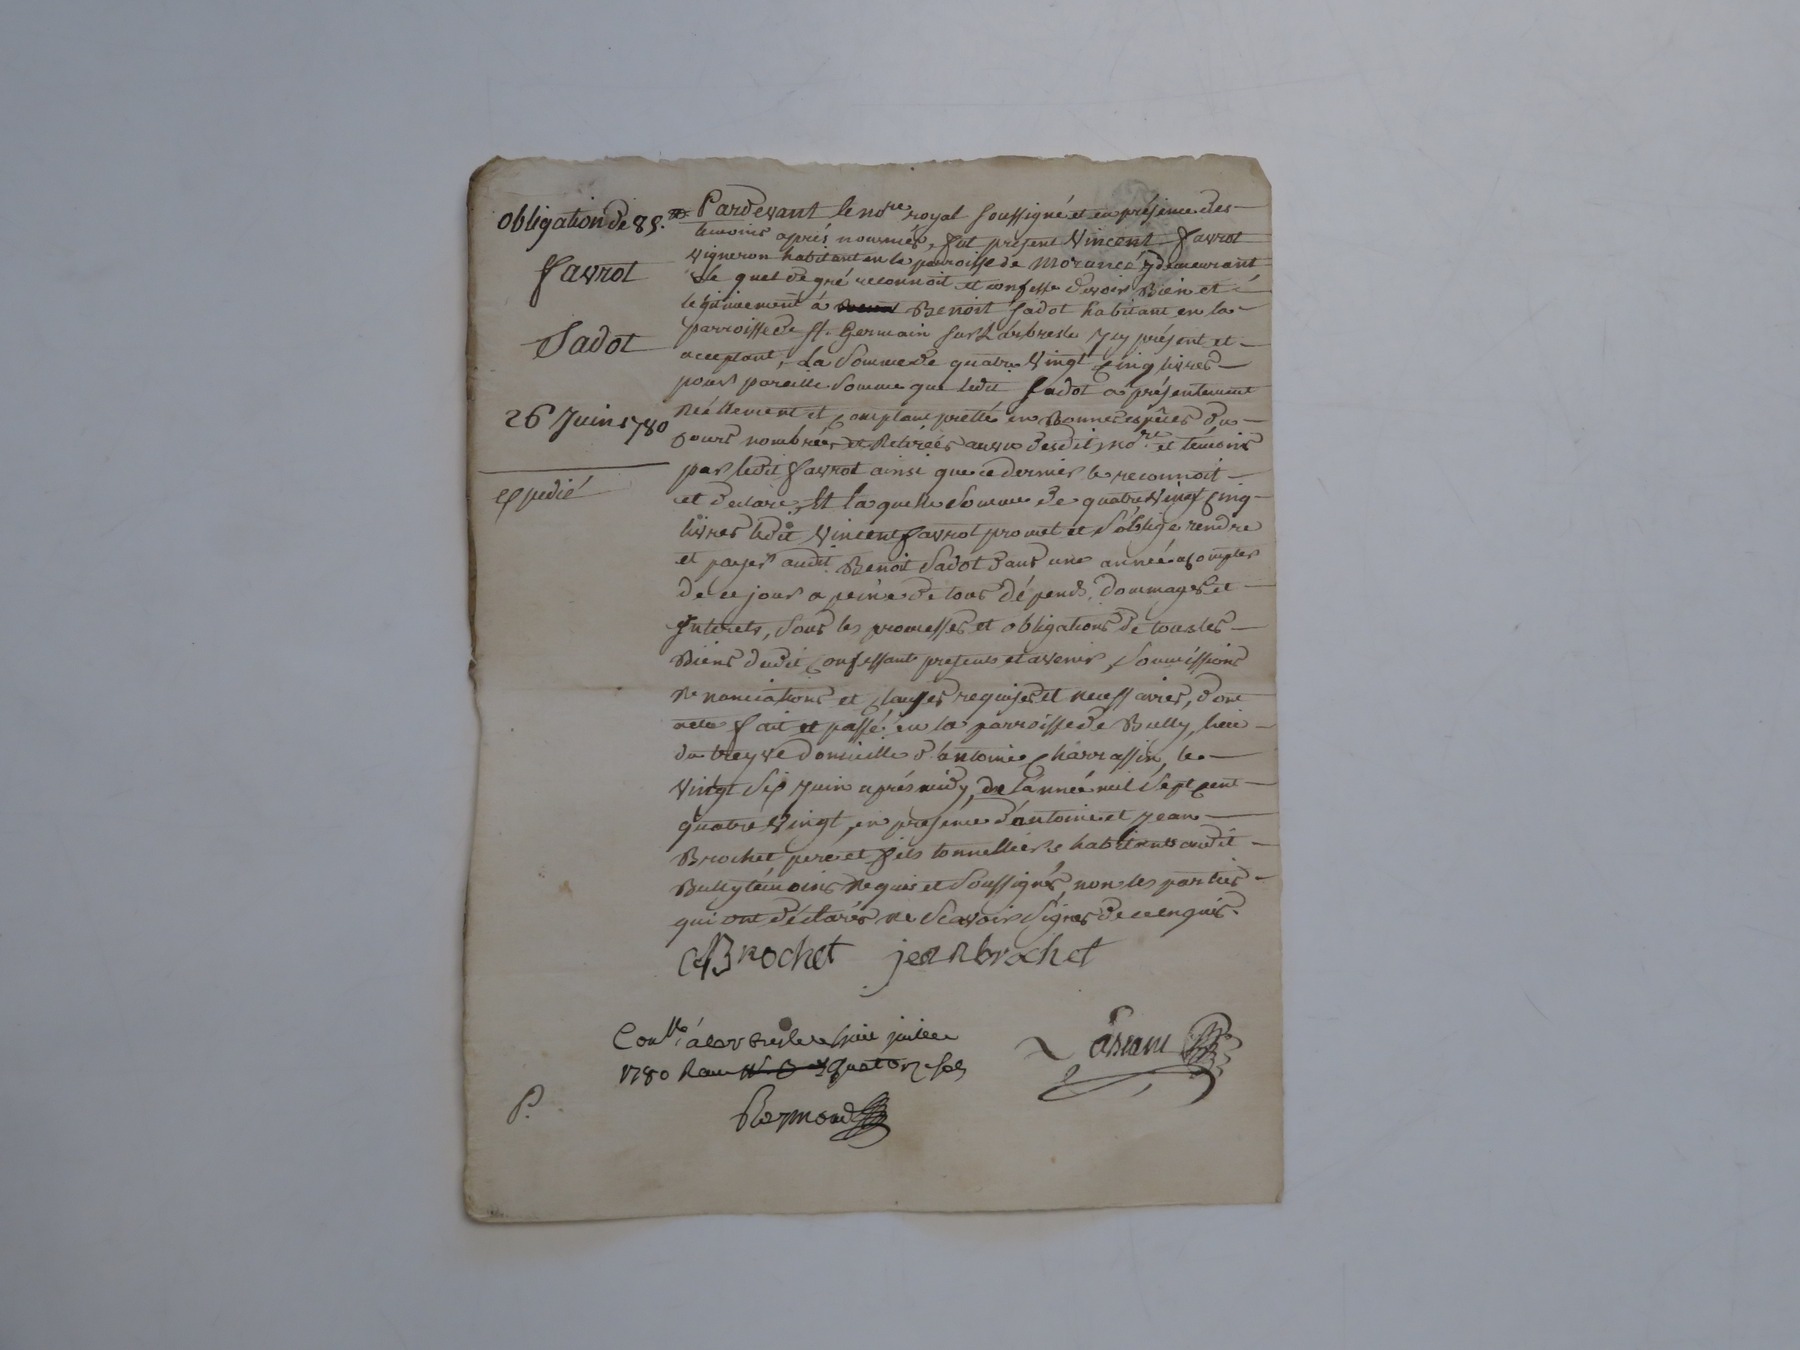 Obligation de 85.tt
favrot
Sadot
26 Juin 1780
expedié
Pardevant le nore royal soussigné et en présence des
temoins aprés nommés, fut present Vincent favrot
vigneron habitant en la parroisse de Morancé y demeurant
Le quel de gré reconnoit et confesse devoir Bien et
legitimement à Benoit Sadot habitant en la
parroisse de St. Germain sur L'arbresle icy présent et
acceptant, La Somme de quatre Vingt Cinq livres
pour pareille Somme que ledit Sadot a présentement
Réellement et Comptant pretté en Bonnes espêces du
Cours nombrées et Retirées au vu desdit nore et témoins
par ledit favrot ainsi que ce dernier le reconnoit
et declare, Et la quelle Somme de quatre Vingt Cinq
livres ledit Vincent favrot promet et S'oblige rendre
et payer audit Benoit Sadot dans une année a compter
de ce jour a peine de tous dépends, dommages et
Interets, Sous les promesses et obligations de tous les
Biens dudit Confessant presents et avenir, Soumissions
Renonciations et Clauses requises et necessaires, dont
acte fait et passé en la parroisse de Bully, lieu
du treyve domicille d'antoine Charrassin, le
Vingt Six Juin aprés midy, de L'année mil Sept Cent
quatre Vingt, en presence d'antoine et Jean
Brochet pere et fils tonnelliers habitants audit
Bully témoins Requis et Soussignés, non les parties
qui ont déclarés ne Scavoir Signer de ce enquis.
Brochet jean brochet
Conllé à larbresle le huit juillet
1780 Reçu quatorze sols
P.